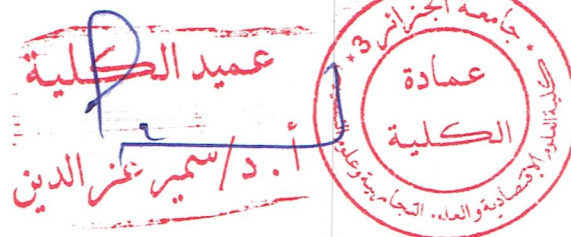 عميد الكلية
أ. د/سمير عز الدين
جامعة الجزائر 3
عمادة
الكلية
كلية العلوم الاقتصادية والعلوم التجارية وعلوم